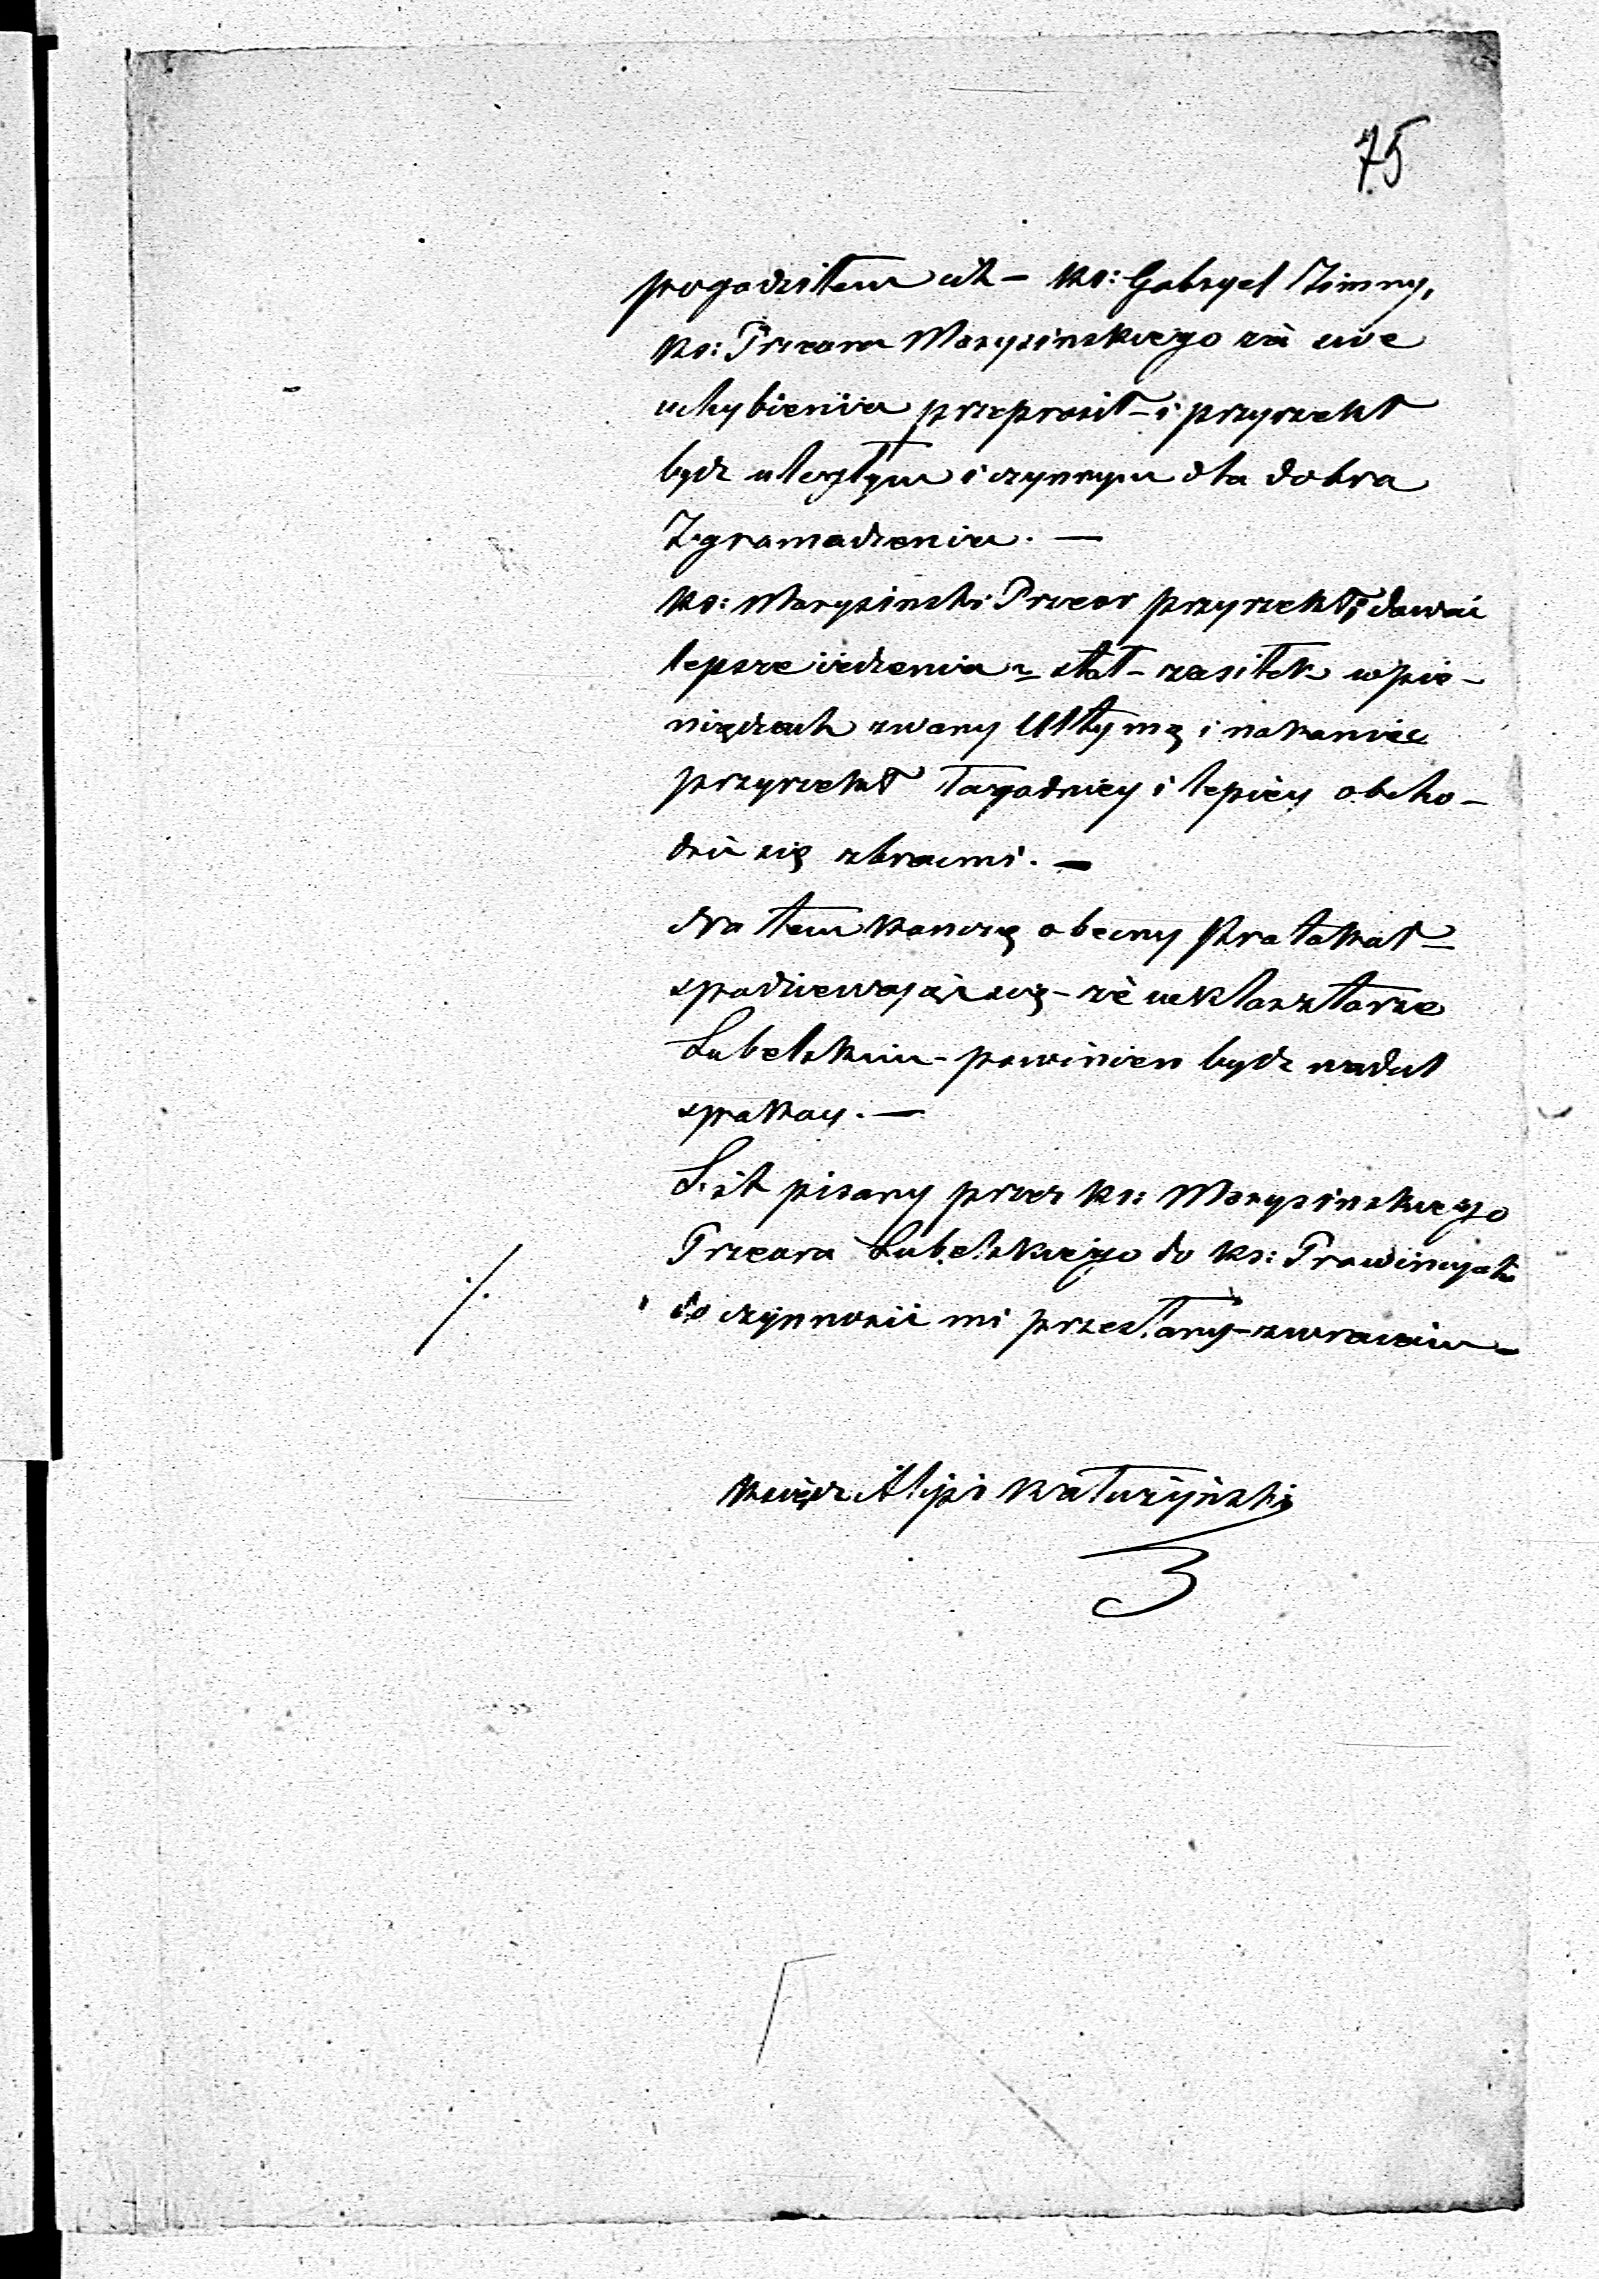 75
pogodziłem ich – ks: Gabryel Zimny,
ks: Przeora Marysińskiego za swe
uchybienia przeprosił – i przyrzekł
bydz uległym i czynnym dla dobra
Zgromadzenia. —
ks: Marysiński Przeor przyrzekł, dawać
lepsze iedzenia stał – zasiłek w pie–
niądzach zwany Ultymą i nakoniec
przyrzekł łagodniey i lepiey obcho–
dzić się z braćmi. —
Na tem kończę obecny Protokół –
spodziewając się – że w klasztorze
Lubelskim – powinien bydz nadal
spokoy. —
List pisany przez ks: Marysińskiego
Przeora Lubelskiego do ks: Prowincyała
./. do czynności mi przesłany – zwracam –
ksiądz Alipi Kałużyński